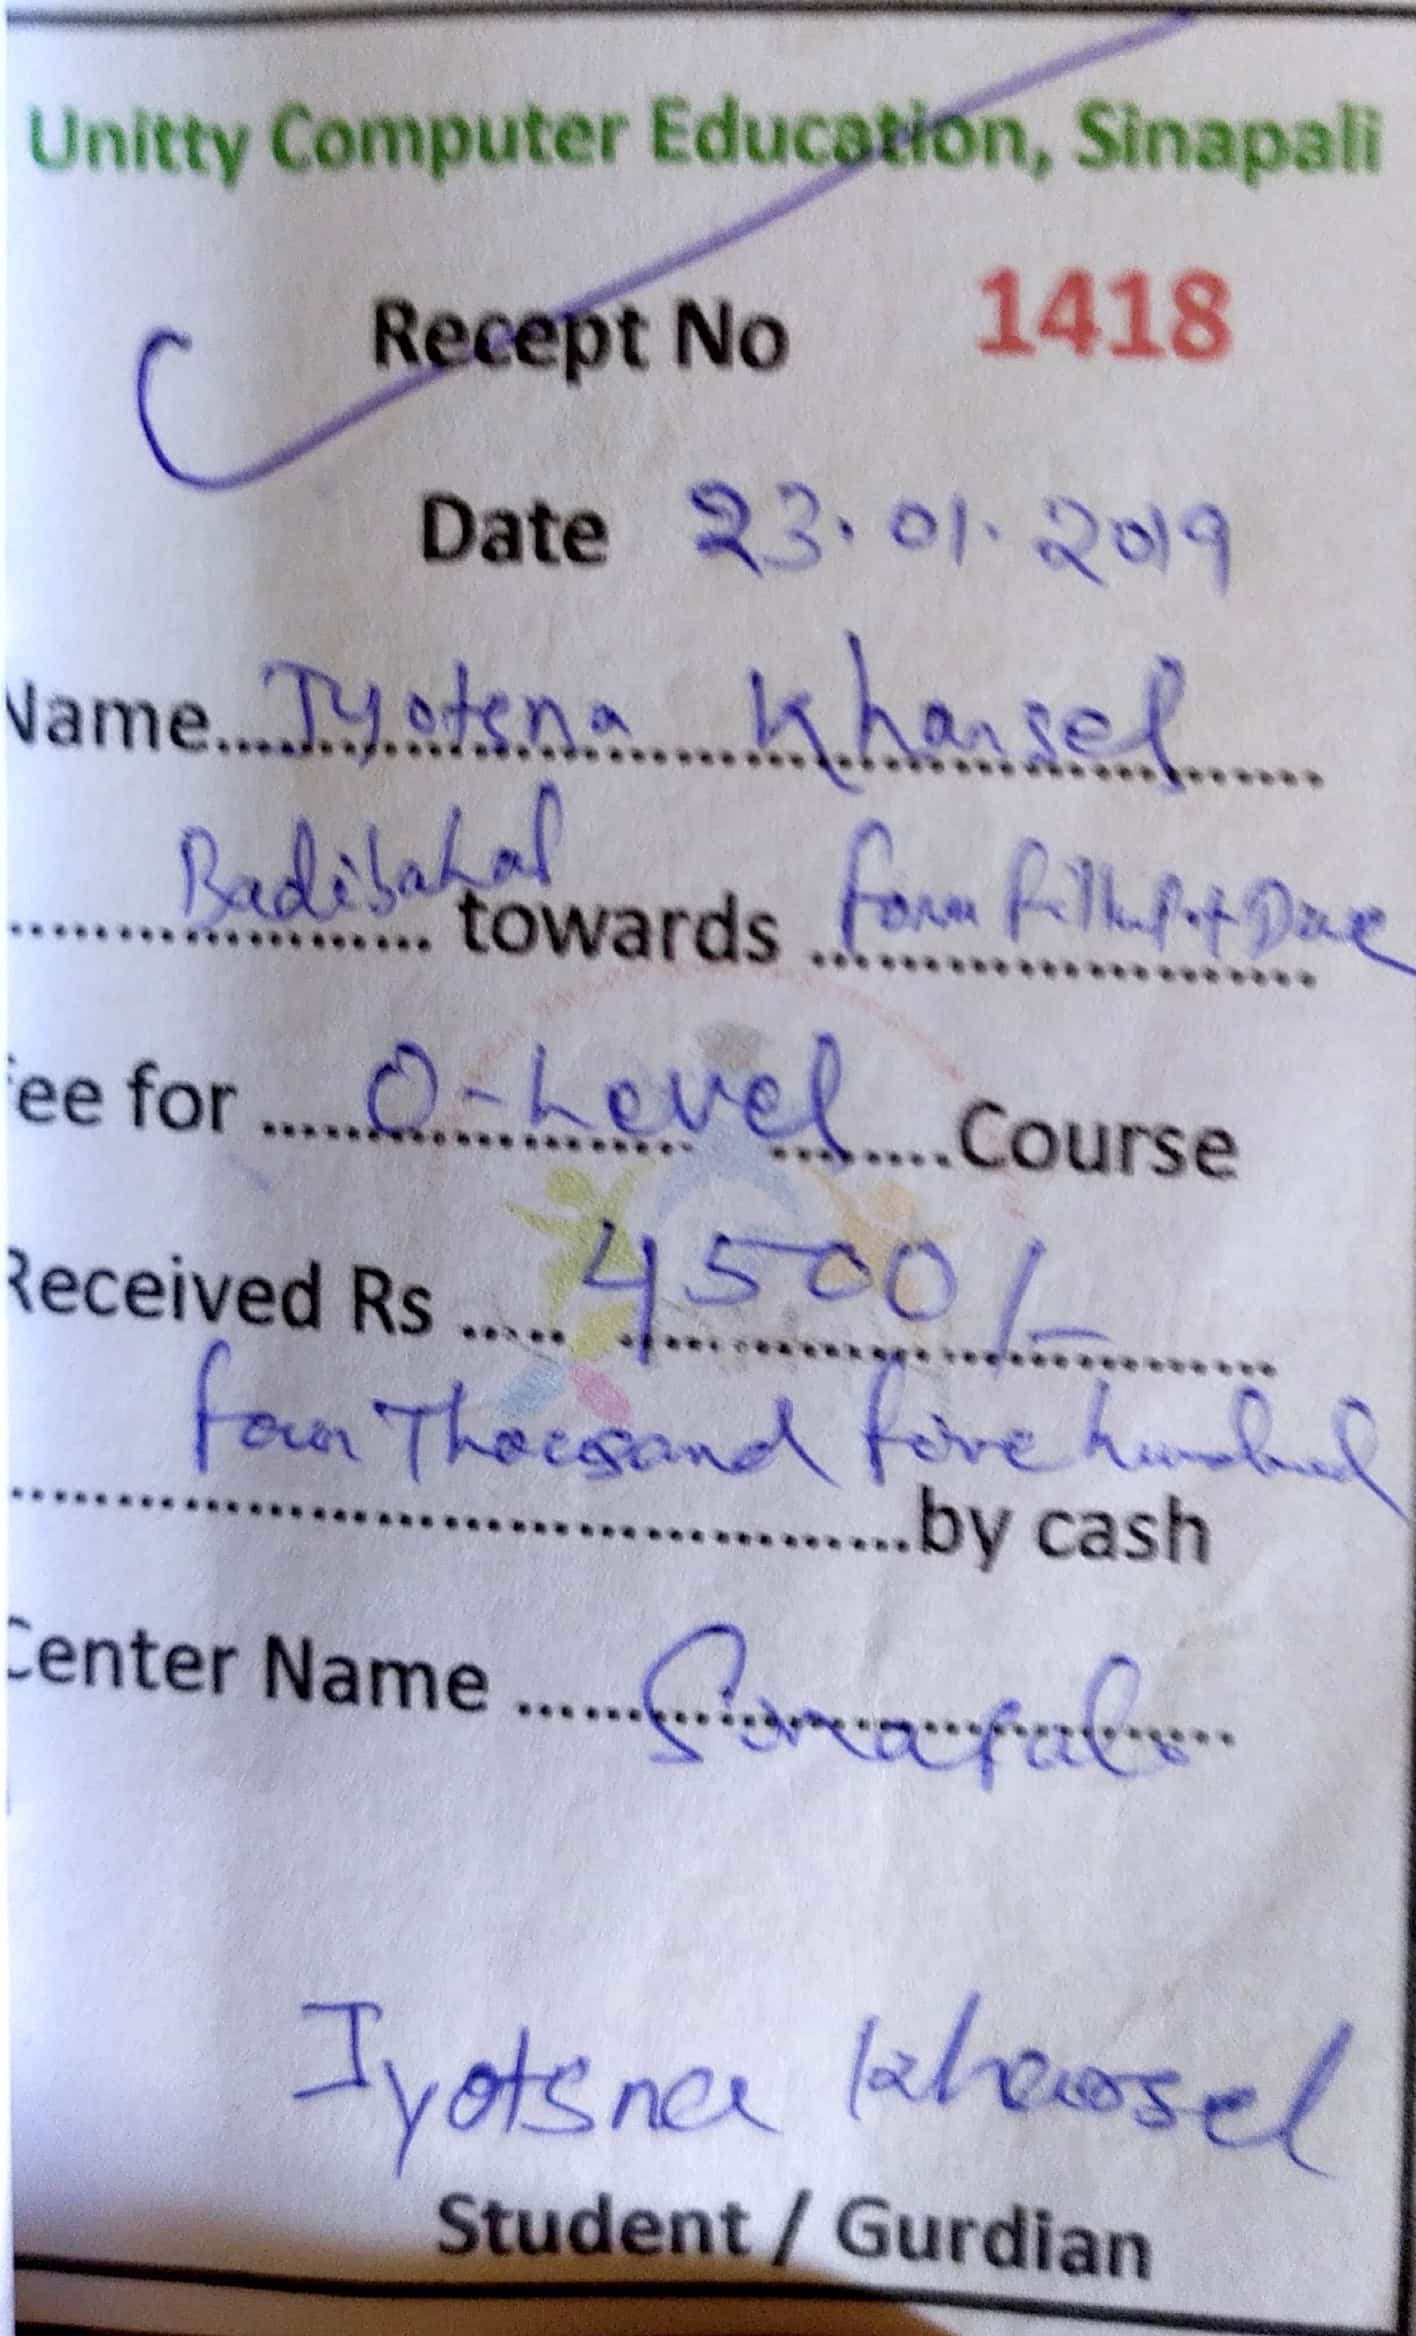 Unitty Computer Education, Sinapali
Recept No 1418
Date 23.01.2019
Name Jyotsna Kharsel
Badibahal towards form fillup + Due
ee for O-Level Course
Received Rs 4500/-
four Thousand five hundred
by cash
Center Name Sinapali
Jyotsna Kharsel
Student / Gurdian